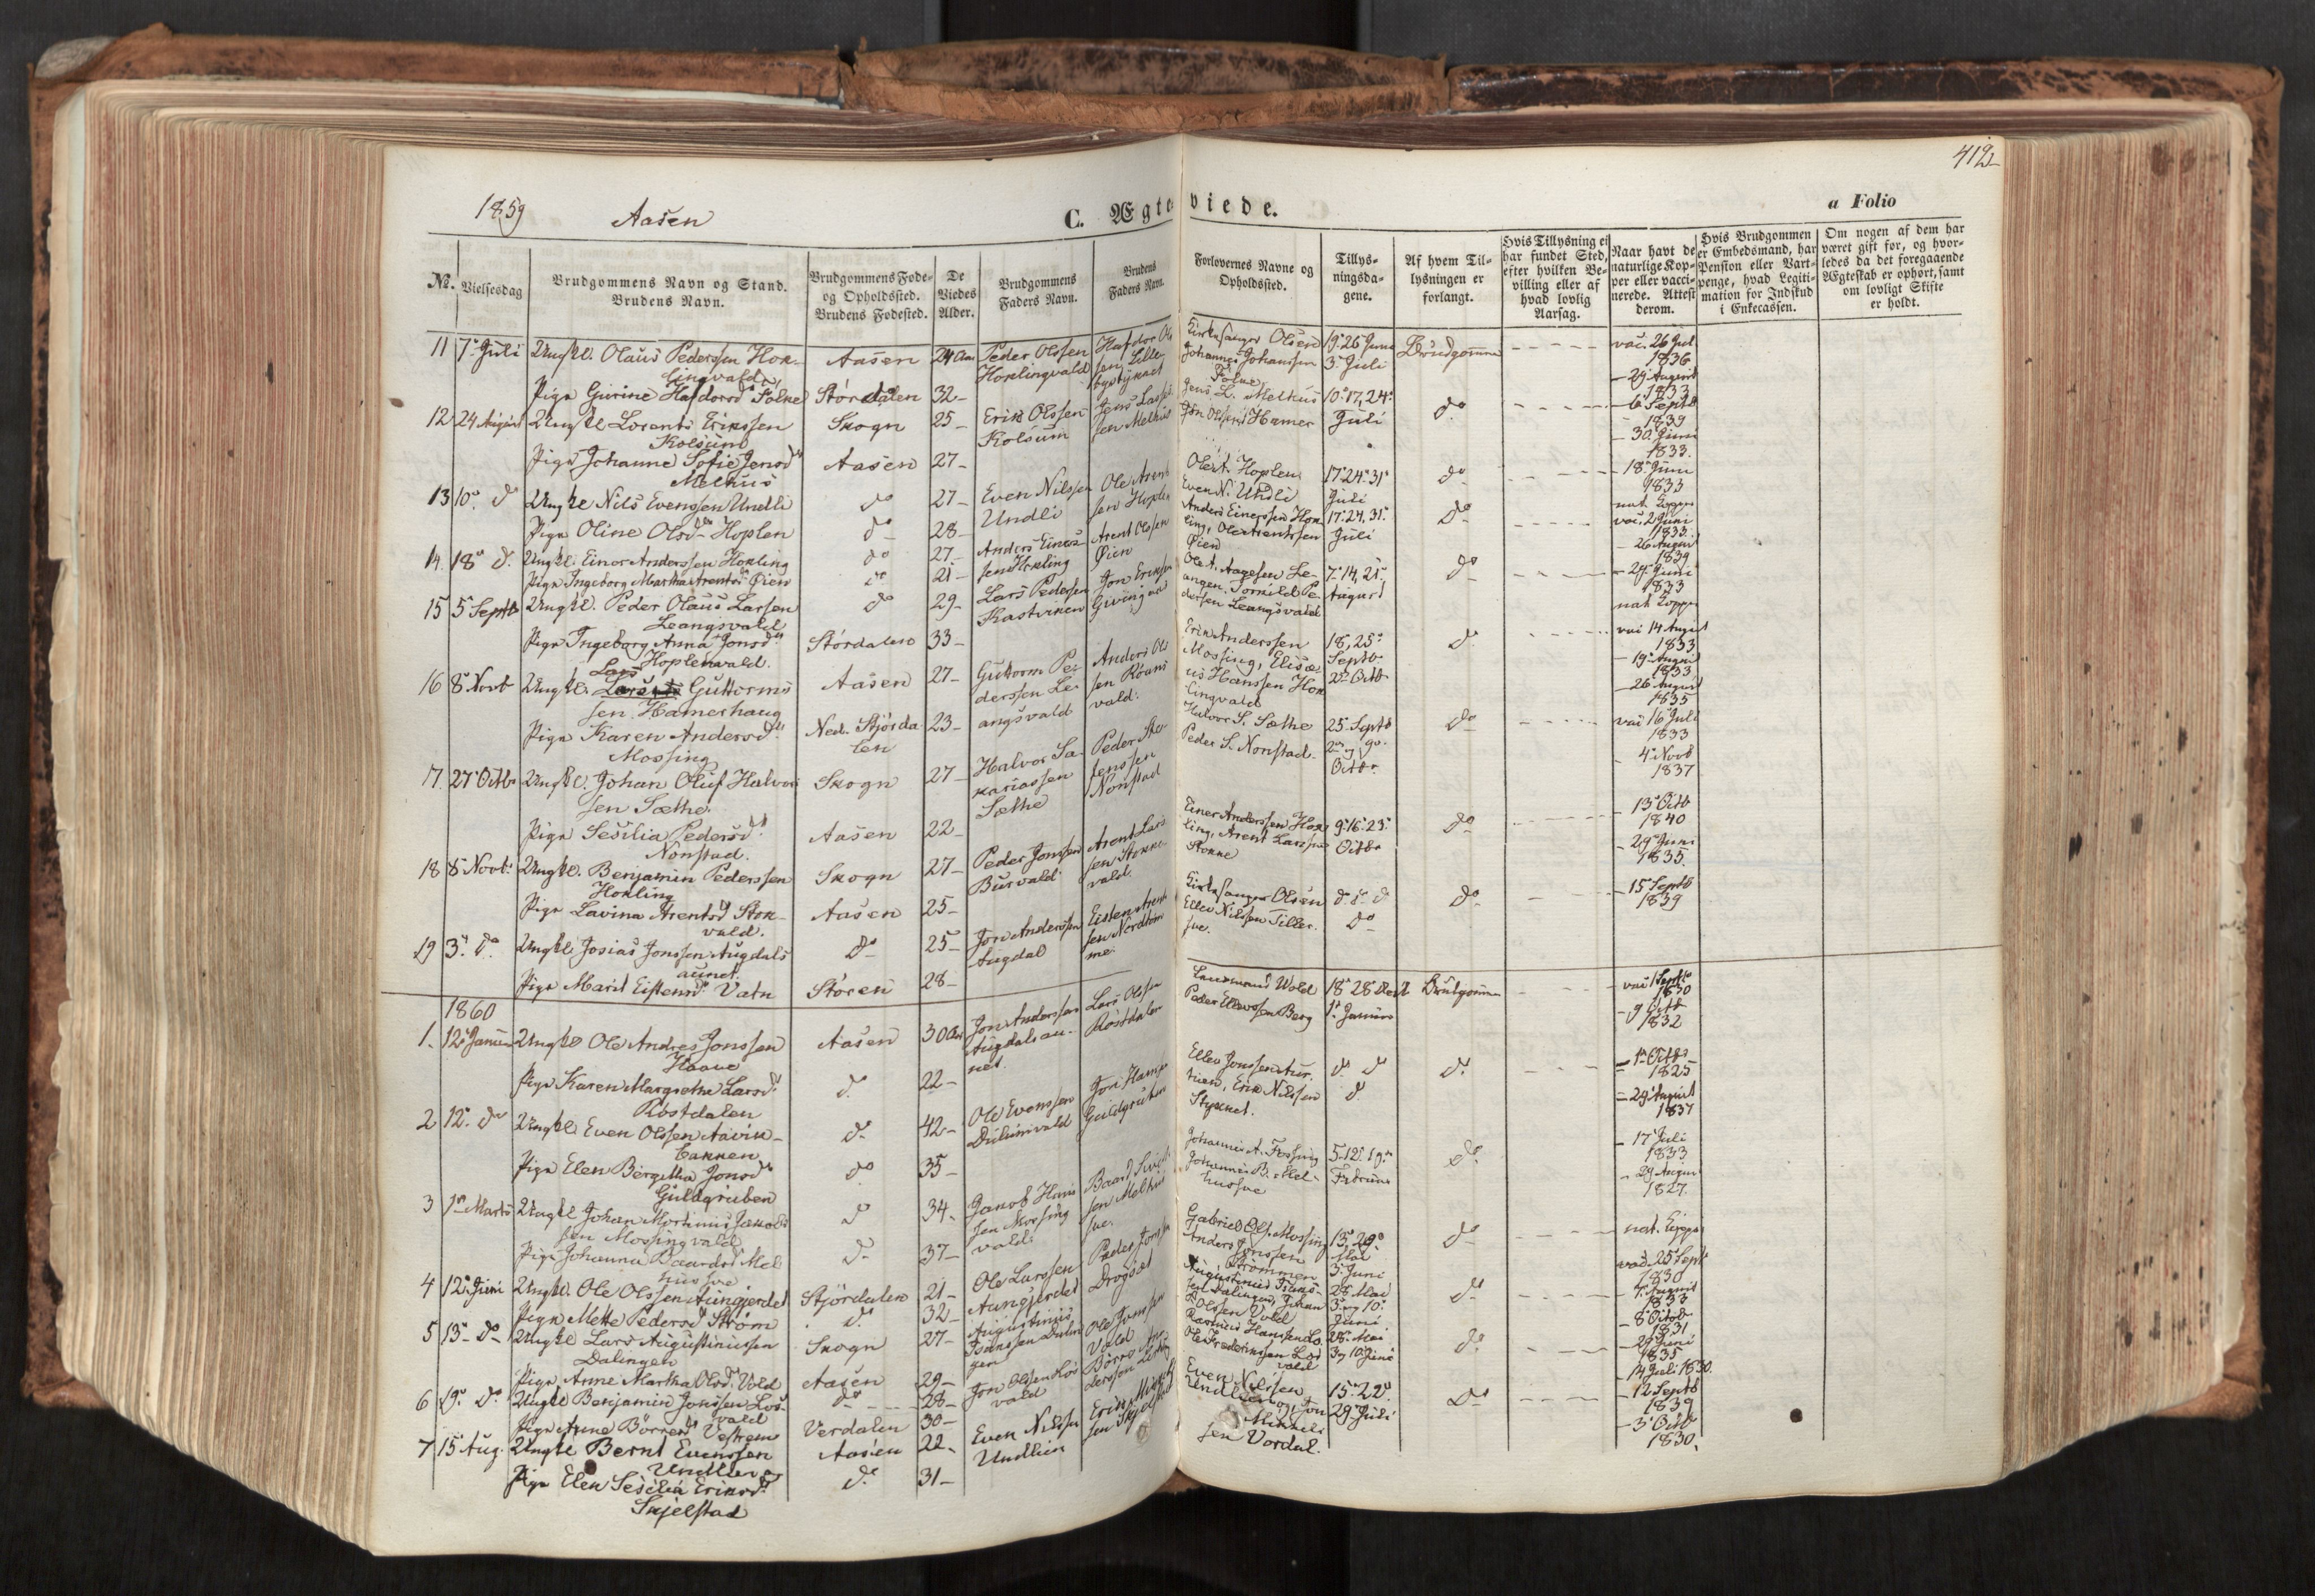 412
1859 Aasen C. Ægteviede. a Folio
No. Vielsesdag
Brudgommens Navn og Stand.
Brudens Navn.
Brudgommens Føde-
og Opholdssted.
Brudens Fødested.
De
Viedes
Alder.
Brudgommens
Faders Navn.
Brudens
Faders Navn.
Forlovernes Navne og
Opholdssted.
Tillys-
ningsda-
gene.
Af hvem Til-
lysningen er
forlangt.
Hvis Tillysning ei
har fundet Sted,
efter hvilken Be-
villing eller af
hvad lovlig
Aarsag.
Naar havt de
naturlige Kop-
per eller vacci-
nerede. Attest
derom.
Hvis Brudgommen
er Embedsmand, har
Pension eller Vart-
penge, hvad Legiti-
mation for Indskud
i Enkecassen.
Om nogen af dem har
været gift før, og hvor-
ledes da det foregaaende
Ægteskab er ophørt, samt
om lovligt Skifte
er holdt.
11 7 Juli Ungkl. Olaus Pederssen Hok-
lingvald Aasen 24 Aar
Peder Olssen
Hoklingvald
Kirkesanger Olsen
Johannes Johanssen
19 26 Juni
3 Juli
Brudgommen
vac. 26 Jul
1836
Pige Gurine Hafdorsd Folke Stordalen 32
29 August
1833
12 24 August Ungkl Lorents Erikssen
Kolsum Skogn 25
Erik Olssen
Kolsum
Jens L. Melhus
Jon Olssen Hamer
10 17, 24
Juli
do
6 Septb
1839
Pige Johanne Sofie Jensd
Melhus Aasen 27
30 Juni
1833
13 10 do Ungkl Nils Evenssen Undli do 27
Even Nilssen
Undli
Ole Arent
sen Hoplen
Ole A. Hoplen
Even N. Undli
17 24 31
Juli
do
18 Juni
1833
Pige Oline Olsd Hoplen do 28
nat. Kopper
14 18 d. Ungkl. Einer Anderssen Hokling do 27
Anders Einers
sen Hokling
Arent Olssen
Øien
Anders Einerssen Hok-
ling, Ole Arentssen
Øien
17 24, 31
Juli
do
vac. 2 Juni
1833
Pige Ingeborg Martha Arentsd Øien do 21
26 August
1839
15 5 Septb Ungkl. Peder Olaus Larsen
Leangsvald do 29
Lars Pedersen
Kastviken
Jon Erikssen
Ole A. Aagesen Le-
angen. Tornild Pe-
dersen Leangsvald
7 14, 21
August
do
24 Juni
1833
Pige Ingeborg Anna Jonsd
Hoplenvald. Stordalen 33
nat. Kopper
16 8 Novb Ungkl. Lars Guttorms
sen Hamerhaug Aasen 27
Guttorm Pe-
derssen Le-
angsvald
Anders Ols
sen Røuns
vald.
Erik Anderssen
Mossing, Elisæ-
us Hanssen Hok
lingvald
18, 25
Septb
2 Octb
do
vac 14 August
1833
19 August
1833
Pige Karen Andersd
Mossing Ned. Stjørda
len 23
26 August
1835
17 27 Octb Ungkl. Johan Oluf Halvor
sen Sæthe. Skogn 27
Halvor Sa-
kariassen
Sæthe
Peder Ste-
fenssen
Nonstad
Halvor S. Sæthe
Peder S. Nonstad.
25 Septb
2 og 9
Octbr.
do
vac 16 Juli
1833
Pige Sesilia Pedersd
Nonstad. Aasen 22
4 Novb
1837
18 8 Novb Ungkl. Benjamin Pederssen
Hokling Skogn 27
Peder Jonssen
Burvald
Arent Lars
sen Stokke-
vald.
Einer Anderssen Hok
ling, Arent Larssen
Stokke
9 16 23
Octbr
do
13 Octb
1840
Pige Lavina Arentsd Stok-
vald. Aasen 25
29 Juni
1835
19 3 do Ungkl. Josias Jonssen Augdals
aunet do 25
Jon Anderssen
Augdal
Eisten Arent
sen Nordtom
me.
Kirkesanger Olsen
Ellev Nilssen Tiller-
sve.
do do do
do
do
15 Septb
1839
Pige Marit Eistensd Vatn Støren 28
1860
1. 12 Januar Ungkl Ole Andreas Jonssen
Haave Aasen 30 Aar
Jon Anderssen
Augdalsau-
net.
Lars Olsen
Røstdalen
Lensmand Wold
Peder Ellevssen Berg
18 28
1 Januar
Brudgommen
vac 1 Septb
1830
9 Octb
1832
Pige Karen Margrethe Larsd
Røstdalen do 22
2 12 do Ungkl. Even Olssen Aavik-
bakken do 42
Ole Evenssen
Jon
Guldgruben
Ellev Jonssen
Erik Nilssen
do do
do
do
1 Octb
1825
Pige Elen Bergitha Jonsd
Guldgruben do 35
29 August
1837
3 1 Marts Ungkl Johan Mortinus Jakobs
sen Mossingvald do 34
Jakob Hans
sen Mossing
vald
Johannes A. Fossing
Johannes B. Mel-
hussve
5 12 19
Februar
do
17 Juli
1833
Pige Johanna Baardsd Mel
hussve do 37
29 August
1827
4 12 Juni Ungkl. Ole Olssen Aungjerdet Stjørdalen 21
Ole Larssen
Aungjerdet
Peder Jonssen
Drogset
Gabriel Ols. Mossing
Anders Jonssen
Strømmen
13, 29
Mai
3 Juni
do
nat. Kopper
Pige Mette Pedersd Strøm do 32
vac 25 Septb
1830
5 13 do Ungkl Lars Augustinussen
Dalingen Skogn 27
Augustinus
Isakssen Dalin
gen
Ole Jonssen
Vold
Augustinus Isaks-
sen Dalingen, Johan
Olssen Vold
28 Mai
3 og 10
Juni
do
7 August
1833
8 Octob
1831
Pige Anne Martha Olsd Vold Aasen 29
6 19 do Ungkl Benjamin Jonssen Los-
vald do 28
Jon Olssen Los
vald
Rasmus Hanssen Lo.
Ole Frederikssen Los
vald
28 Mai
3 og 10 Juni
do
29 Juni
1835
Pige Anne Børresd Vestrem Verdalen 30
14 Juli 1830
7 15 Aug. Ungkl Bernt Evenssen
Undlien Aasen 22
Even Nilssen
Undlien
Erik Mikkel
sen Skjelstad
Even Nilssen
Undlien og Jon
Mikkels
sen Vordal.
15 22
29 Juli
do
12 Septb
1839
Pige Elen Sesilia Eriksd
Skjelstad do 31
3 Octb
1830